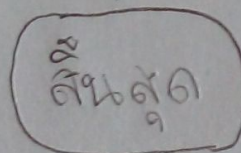 สิ้นสุด